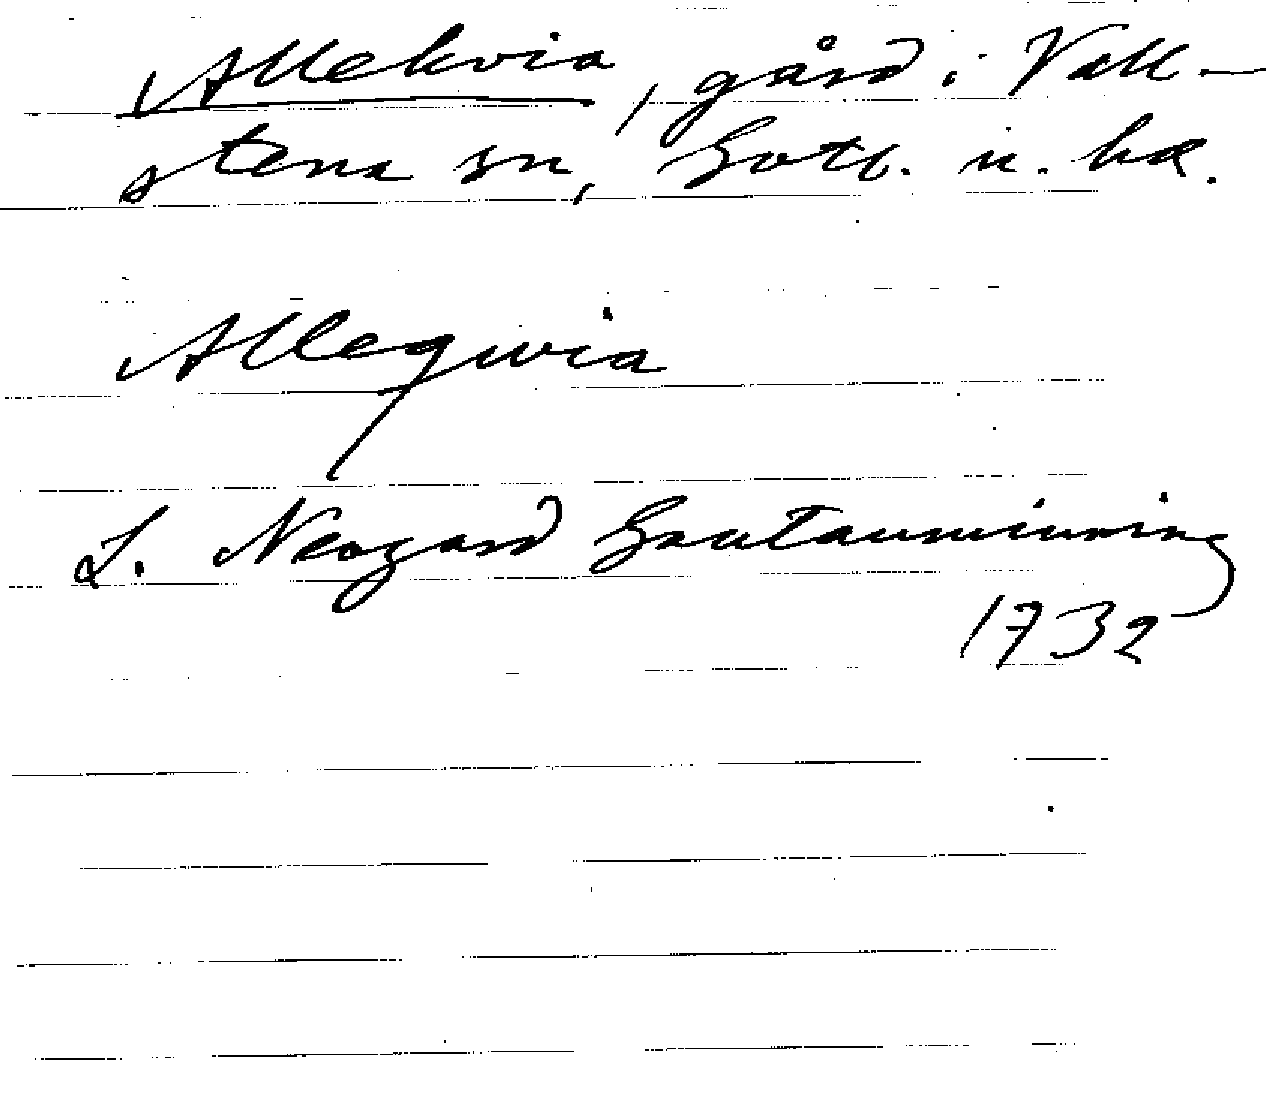 Allekvia, gård i Vall-
stena sn, Gotl. n. hd.
Alleqvia
L. Neogard Gautauminning
1732